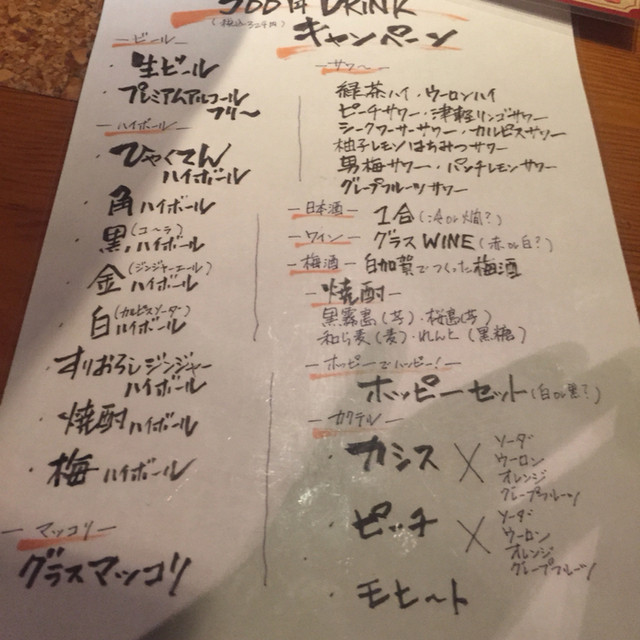 300円 DRINK
(税込324円)
キャンペーン
ービールー
・生ビール
・プレミアムアルコール
フリー
ーハイボールー
・ひゃくてん
ハイボール
・角ハイボール
・黒(コーラ)ハイボール
・金(ジンジャーエール)ハイボール
・白(カルピスソーダ)ハイボール
・すりおろしジンジャー
ハイボール
・焼酎ハイボール
・梅ハイボール
ーマッコリー
グラスマッコリ
ーサワー
緑茶ハイ・ウーロンハイ
ピーチサワー・津軽リンゴサワー
シークワーサーサワー・カルピスサワー
柚子レモンはちみつサワー
男梅サワー・パンチレモンサワー
グレープフルーツサワー
ー日本酒ー 1合(冷or燗?)
ーワインー グラスWINE(赤or白?)
ー梅酒ー 白加賀でつくった梅酒
ー焼酎ー
黒霧島(芋)・桜島(芋)
和ら麦(麦)・れんと(黒糖)
ーホッピーでハッピー!ー
ホッピーセット(白or黒?)
ーカクテルー
・カシス×
ソーダ
ウーロン
オレンジ
グレープフルーツ
・ピーチ×
ソーダ
ウーロン
オレンジ
グレープフルーツ
・モヒート